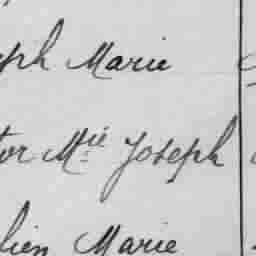 ph Marie
tor Mie Joseph
lien Marie